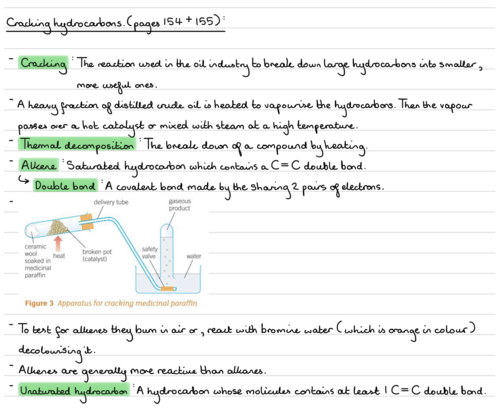 Cracking hydrocarbons. (pages 154 + 155):
- Cracking: The reaction used in the oil industry to break down large hydrocarbons into smaller,
more useful ones.
- A heavy fraction of distilled crude oil is heated to vapourise the hydrocarbons. Then the vapour
passes over a hot catalyst or mixed with steam at a high temperature.
- Thermal decomposition: The break down of a compound by heating.
- Alkene: Saturated hydrocarbon which contains a C=C double bond.
↳ Double bond: A covalent bond made by the sharing 2 pairs of electrons.
-
delivery tube
gaseous
product
ceramic
wool
soaked in
medicinal
paraffin
heat
broken pot
(catalyst)
safety
valve
water
Figure 3 Apparatus for cracking medicinal paraffin
- To test for alkenes they burn in air or, react with bromine water (which is orange in colour)
decolourising it.
- Alkenes are generally more reactive than alkanes.
- Unaturated hydrocarbon: A hydrocarbon whose molecules contains at least 1 C=C double bond.